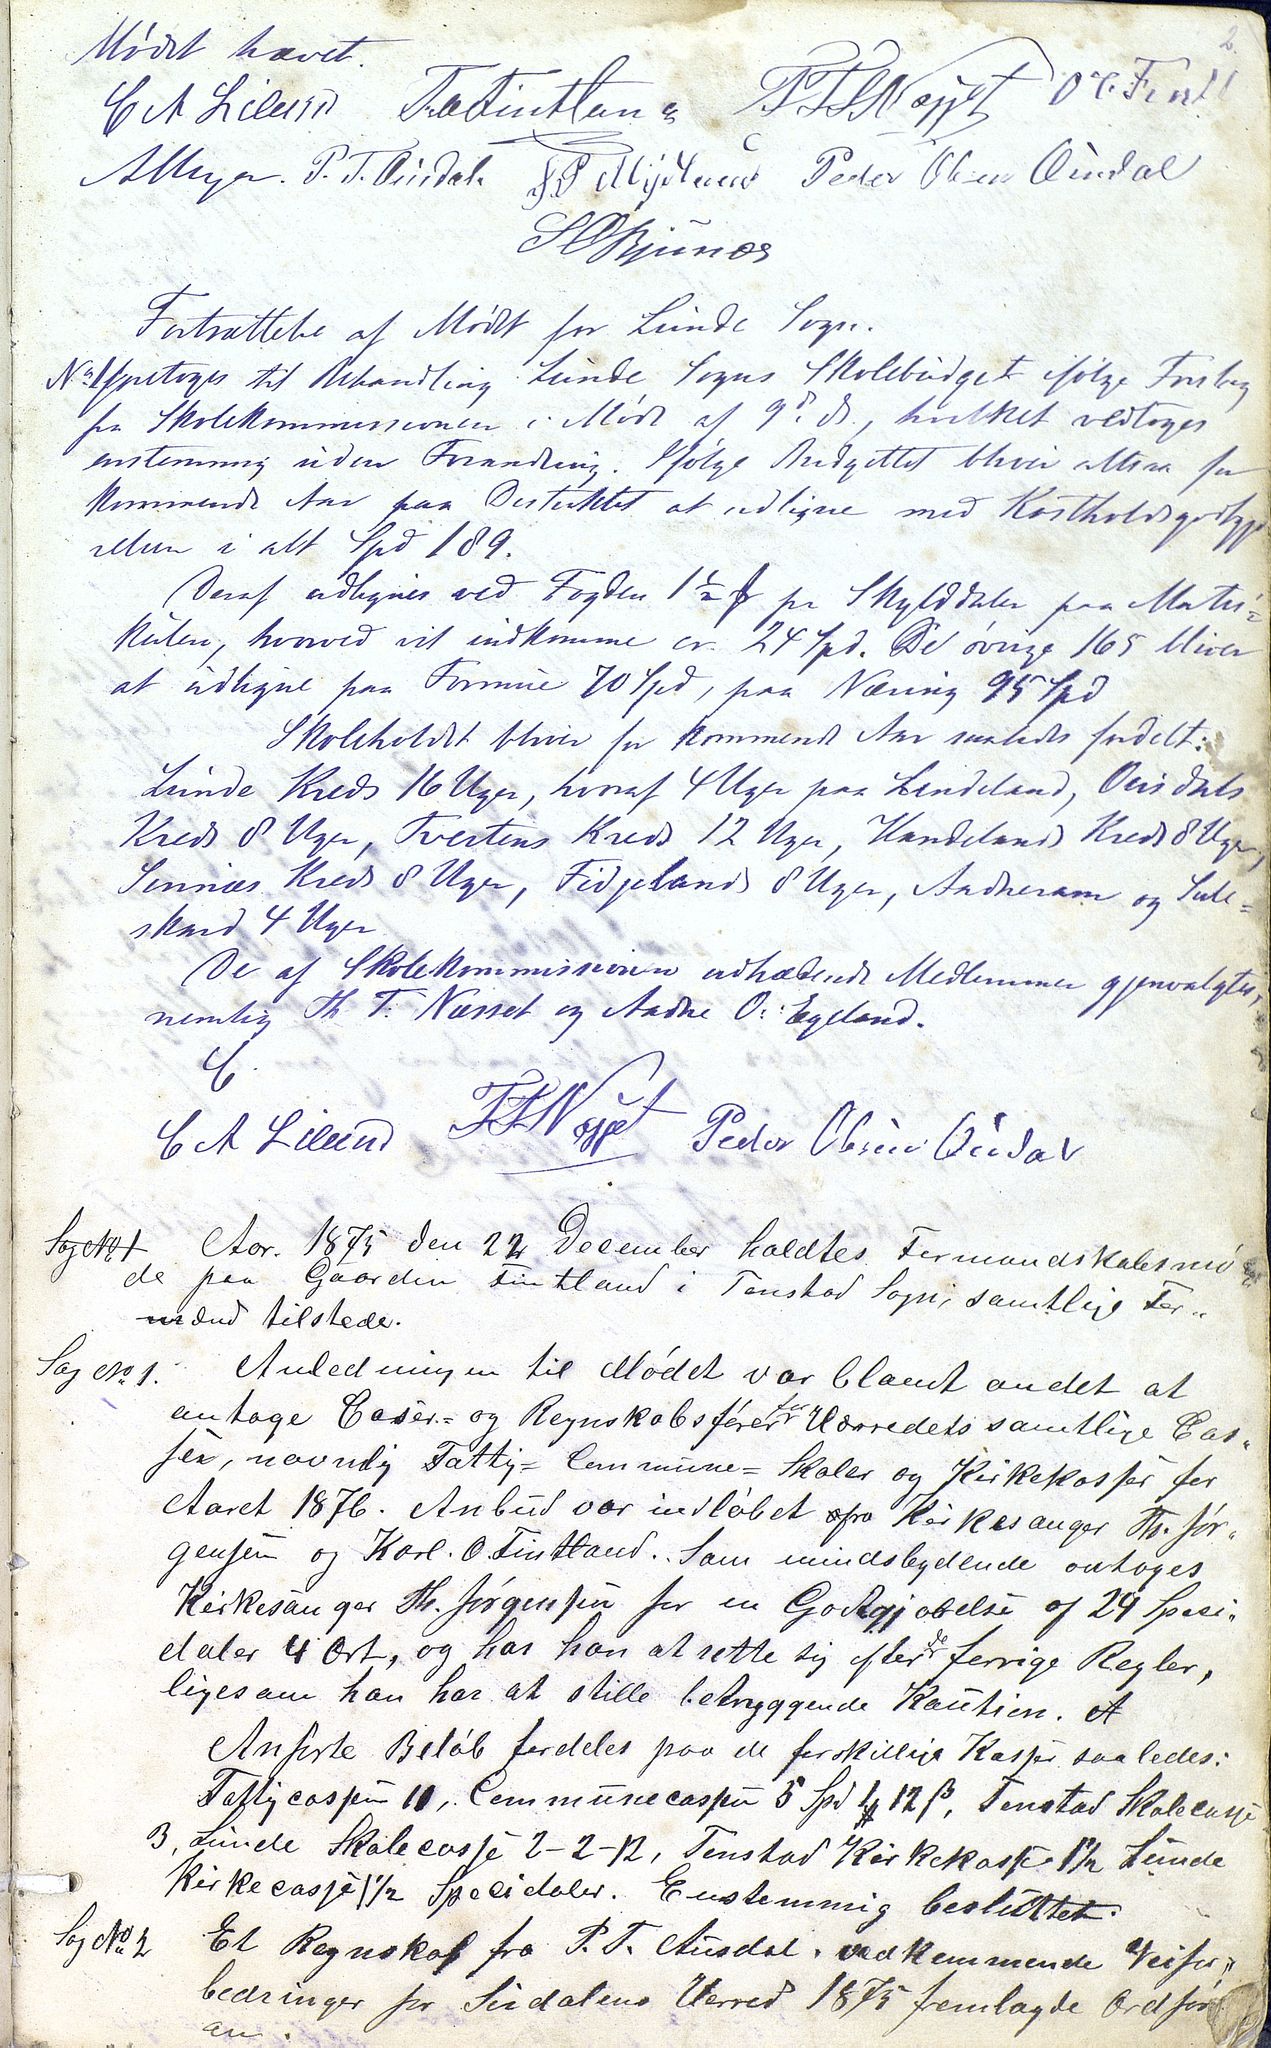 2.
Mødet hævet.
C A Liland T. A Tintland T T Næsset O
A Meyer. P. T. Ousdal. Peder Olsen Ousdal
Fortsættelse af Mødet for Lunde Sogn.
No 1 foretoges til Behandling Lunde Sogns Skolebudget ifølge Forslag
fra Skolekommissionen i Møde af 9d ds., hvilket vedtoges
enstemmig uden Forandring. Ifølge Budgettet bliver altsaa for
kommende Aar paa Distriktet at udligne med Kostholdsgodtgjø
relsen i alt Spd 189.
Deraf udlignes ved Fogden 1½ ß pr Skylddaler paa Matri-
kulen, hvorved vil indkomme ca. 24 Spd. De øvrige 165 bliver
at udligne paa Formue 70 Spd, paa Næring 95 Spd
Skoleholdet bliver for kommende Aar saaledes fordelt:
Lunde Kreds 16 Uger, hvoraf 4 Uger paa Lindeland, Ousdals
Kreds 8 Uger, Tveitens Kreds 12 Uger, Handelands Kreds 8 Uger,
Sinnæs Kreds 8 Uger, Fidjelands 8 Uger, Aadneram og Sule=
skard 4 Uger
De af Skolekommissionen udtrædende Medlemmer gjenvalgtes,
nemlig Th T. Næsset og Aadne O. Egeland.
C.
C A Liland T T Næsset Peder Olsen Ousdal
Sag No 1 Aar. 1875 den 22 December holdtes Formandskabsmø
de paa Gaarden Tintland i Tonstad Sogn, samtlige For„
mænd tilstede.
Sag No 1. Anledningen til Mødet var blandt andet at
antage Casér- og Regnskabsfører for Herredets samtlige Cas„
ser, navnlig Fattig= Commune= Skoler og Kirkekasser for
Aaret 1876. Anbud var indløbet fra Kirkesanger Th. Jør„
gensen og Karl. O. Tintland. Som mindstbydende antoges
Kirkesanger Th. Jørgensen for en Godtgjøbelse af 24 Spesi„
daler 4 Ort, og har han at rette sig efter de forrige Regler,
ligesom han har at stille betryggende Kaution. A
Anførte Beløb fordeles paa de forskjellige Kasser saaledes:
Fattigcassen 11, Communecassen 5 Spd 1 # 12 ß, Tonstad Skolecasse
3, Lunde Skolecasse 2-2-12, Tonstad Kirkekasse 1½ Lunde
Kirkecasse 1½ Specidaler. Enstemmig besluttet.
Sag No 2 Et Regnskab fra P. T. Ausdal. vedkommende Veifor„
bedringer for Sirdalens Herred 1875 fremlagde Ordfør
en.